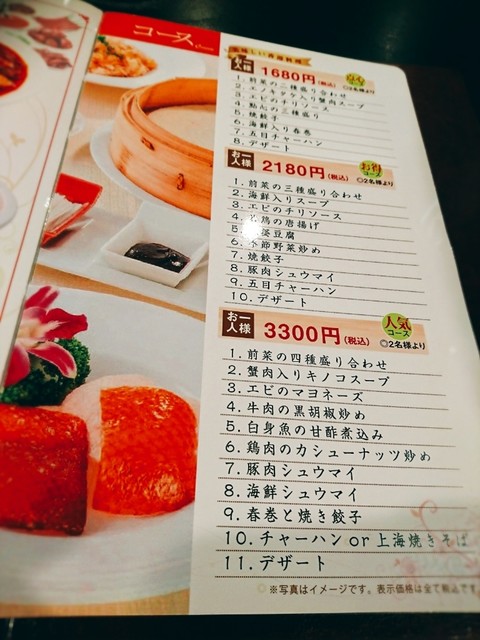 コース
美味しい香港料理
お一人様 1680円(税込)
◎2名様より
1. 前菜の二種盛り合わせ
2. エノキダケ入り蟹肉スープ
3. エビのチリソース
4. 点心の三種盛り
5. 焼餃子
6. 海鮮入り春巻
7. 五目チャーハン
8. デザート
お一人様 2180円(税込)
お得コース
◎2名様より
1. 前菜の三種盛り合わせ
2. 海鮮入りスープ
3. エビのチリソース
4. 鶏の唐揚げ
5. 婆豆腐
6. 季節野菜炒め
7. 焼餃子
8. 豚肉シュウマイ
9. 五目チャーハン
10. デザート
お一人様 3300円(税込)
人気コース
◎2名様より
1. 前菜の四種盛り合わせ
2. 蟹肉入りキノコスープ
3. エビのマヨネーズ
4. 牛肉の黒胡椒炒め
5. 白身魚の甘酢煮込み
6. 鶏肉のカシューナッツ炒め
7. 豚肉シュウマイ
8. 海鮮シュウマイ
9. 春巻と焼き餃子
10. チャーハン or 上海焼きそば
11. デザート
※写真はイメージです。表示価格は全て税込です